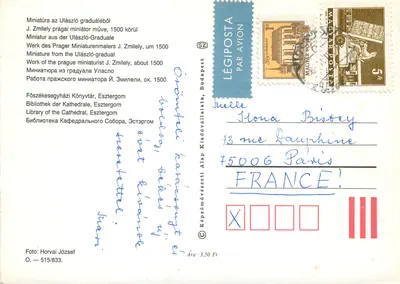 Miniatúra az Ulászló graduáléból
J. Zmilely prágai miniátor műve, 1500 körül
Miniatur aus der Ulászló-Graduale
Werk des Prager Miniaturenmalers J. Zmilely, um 1500
Miniature from the Ulászló gradual
Work of the prague miniaturist J. Zmilely, about 1500
Миниатюра из градуала Уласло
Работа пражского миниатора Й. Змилели, ок. 1500
Főszékesegyházi Könyvtár, Esztergom
Bibliothek der Kathedrale, Esztergom
Library of the Cathedral, Esztergom
Библиотека Кафедрального Собора, Эстаргом
Örömteli karácsonyt és
boldog, békés új
évet kívánok
szeretettel:
Mari
Foto: Horvai József
O. — 515/833.
Ára: 3,50 Ft
© Képzőművészeti Alap Kiadóvállalata, Budapest
LÉGIPOSTA
PAR AVION
5
Ilona
13 rue Dauphine
75006 Paris
FRANCE!
X